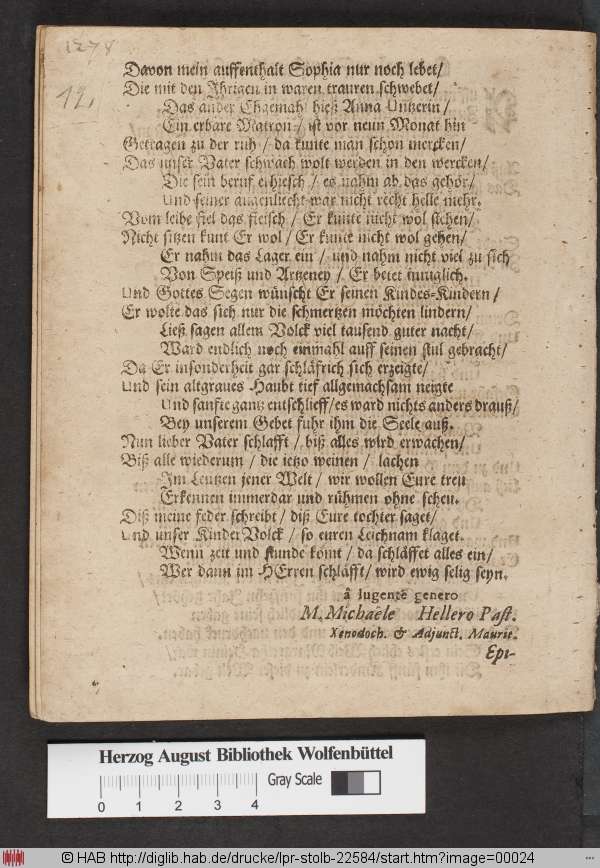 1278
12.
Davon mein auffenthalt Sophia nur noch lebet/
Die mit den Ihrigen in waren trauren schwebet/
Das ander Ehgemahl hieß Anna Untzerin/
Ein erbare Matron/ ist vor neun Monat hin
Getragen zu der ruh/ da kunte man schon mercken/
Das unser Vater schwach wolt werden in den wercken/
Die sein beruf erhiesch/ es nahm ab das gehör/
Und seiner augenliecht war nicht recht helle mehr.
Vom leibe fiel das fleisch/ Er kunte nicht wol stehen/
Nicht sitzen kunt Er wol/ Er kunte nicht wol gehen/
Er nahm das Lager ein/ und nahm nicht viel zu sich
Von Speiß und Artzeney/ Er betet inniglich.
Und Gottes Segen wünscht Er seinen Kindes-Kindern/
Er wolte das sich nur die schmertzen möchten lindern/
Ließ sagen allem Volck viel tausend guter nacht/
Ward endlich noch einmahl auff seinen stul gebracht/
Da Er insonderheit gar schläfrich sich erzeigte/
Und sein altgraues Haubt tief allgemachsam neigte
Und sanfte gantz entschlieff/es ward nichts anders drauß/
Bey unserem Gebet fuhr ihm die Seele auß.
Nun lieber Vater schlafft/ biß alles wird erwachen/
Biß alle wiederum/ die ietzo weinen/ lachen
Im Lentzen jener Welt/ wir wollen Eure treu
Erkennen immerdar und rühmen ohne scheu.
Diß meine feder schreibt/ diß Eure tochter saget/
Und unser Kinder Volck/ so euren Leichnam klaget.
Wenn zeit und stunde kömt/ da schläffet alles ein/
Wer dann im HErren schläfft/ wird ewig selig seyn.
â lugentē genero
M. Michaële Hellero Past.
Xenodoch. & Adjunct. Mauric.
Epi-
Herzog August Bibliothek Wolfenbüttel
0 1 2 3 4
Gray Scale
© HAB http://diglib.hab.de/drucke/lpr-stolb-22584/start.htm?image=00024